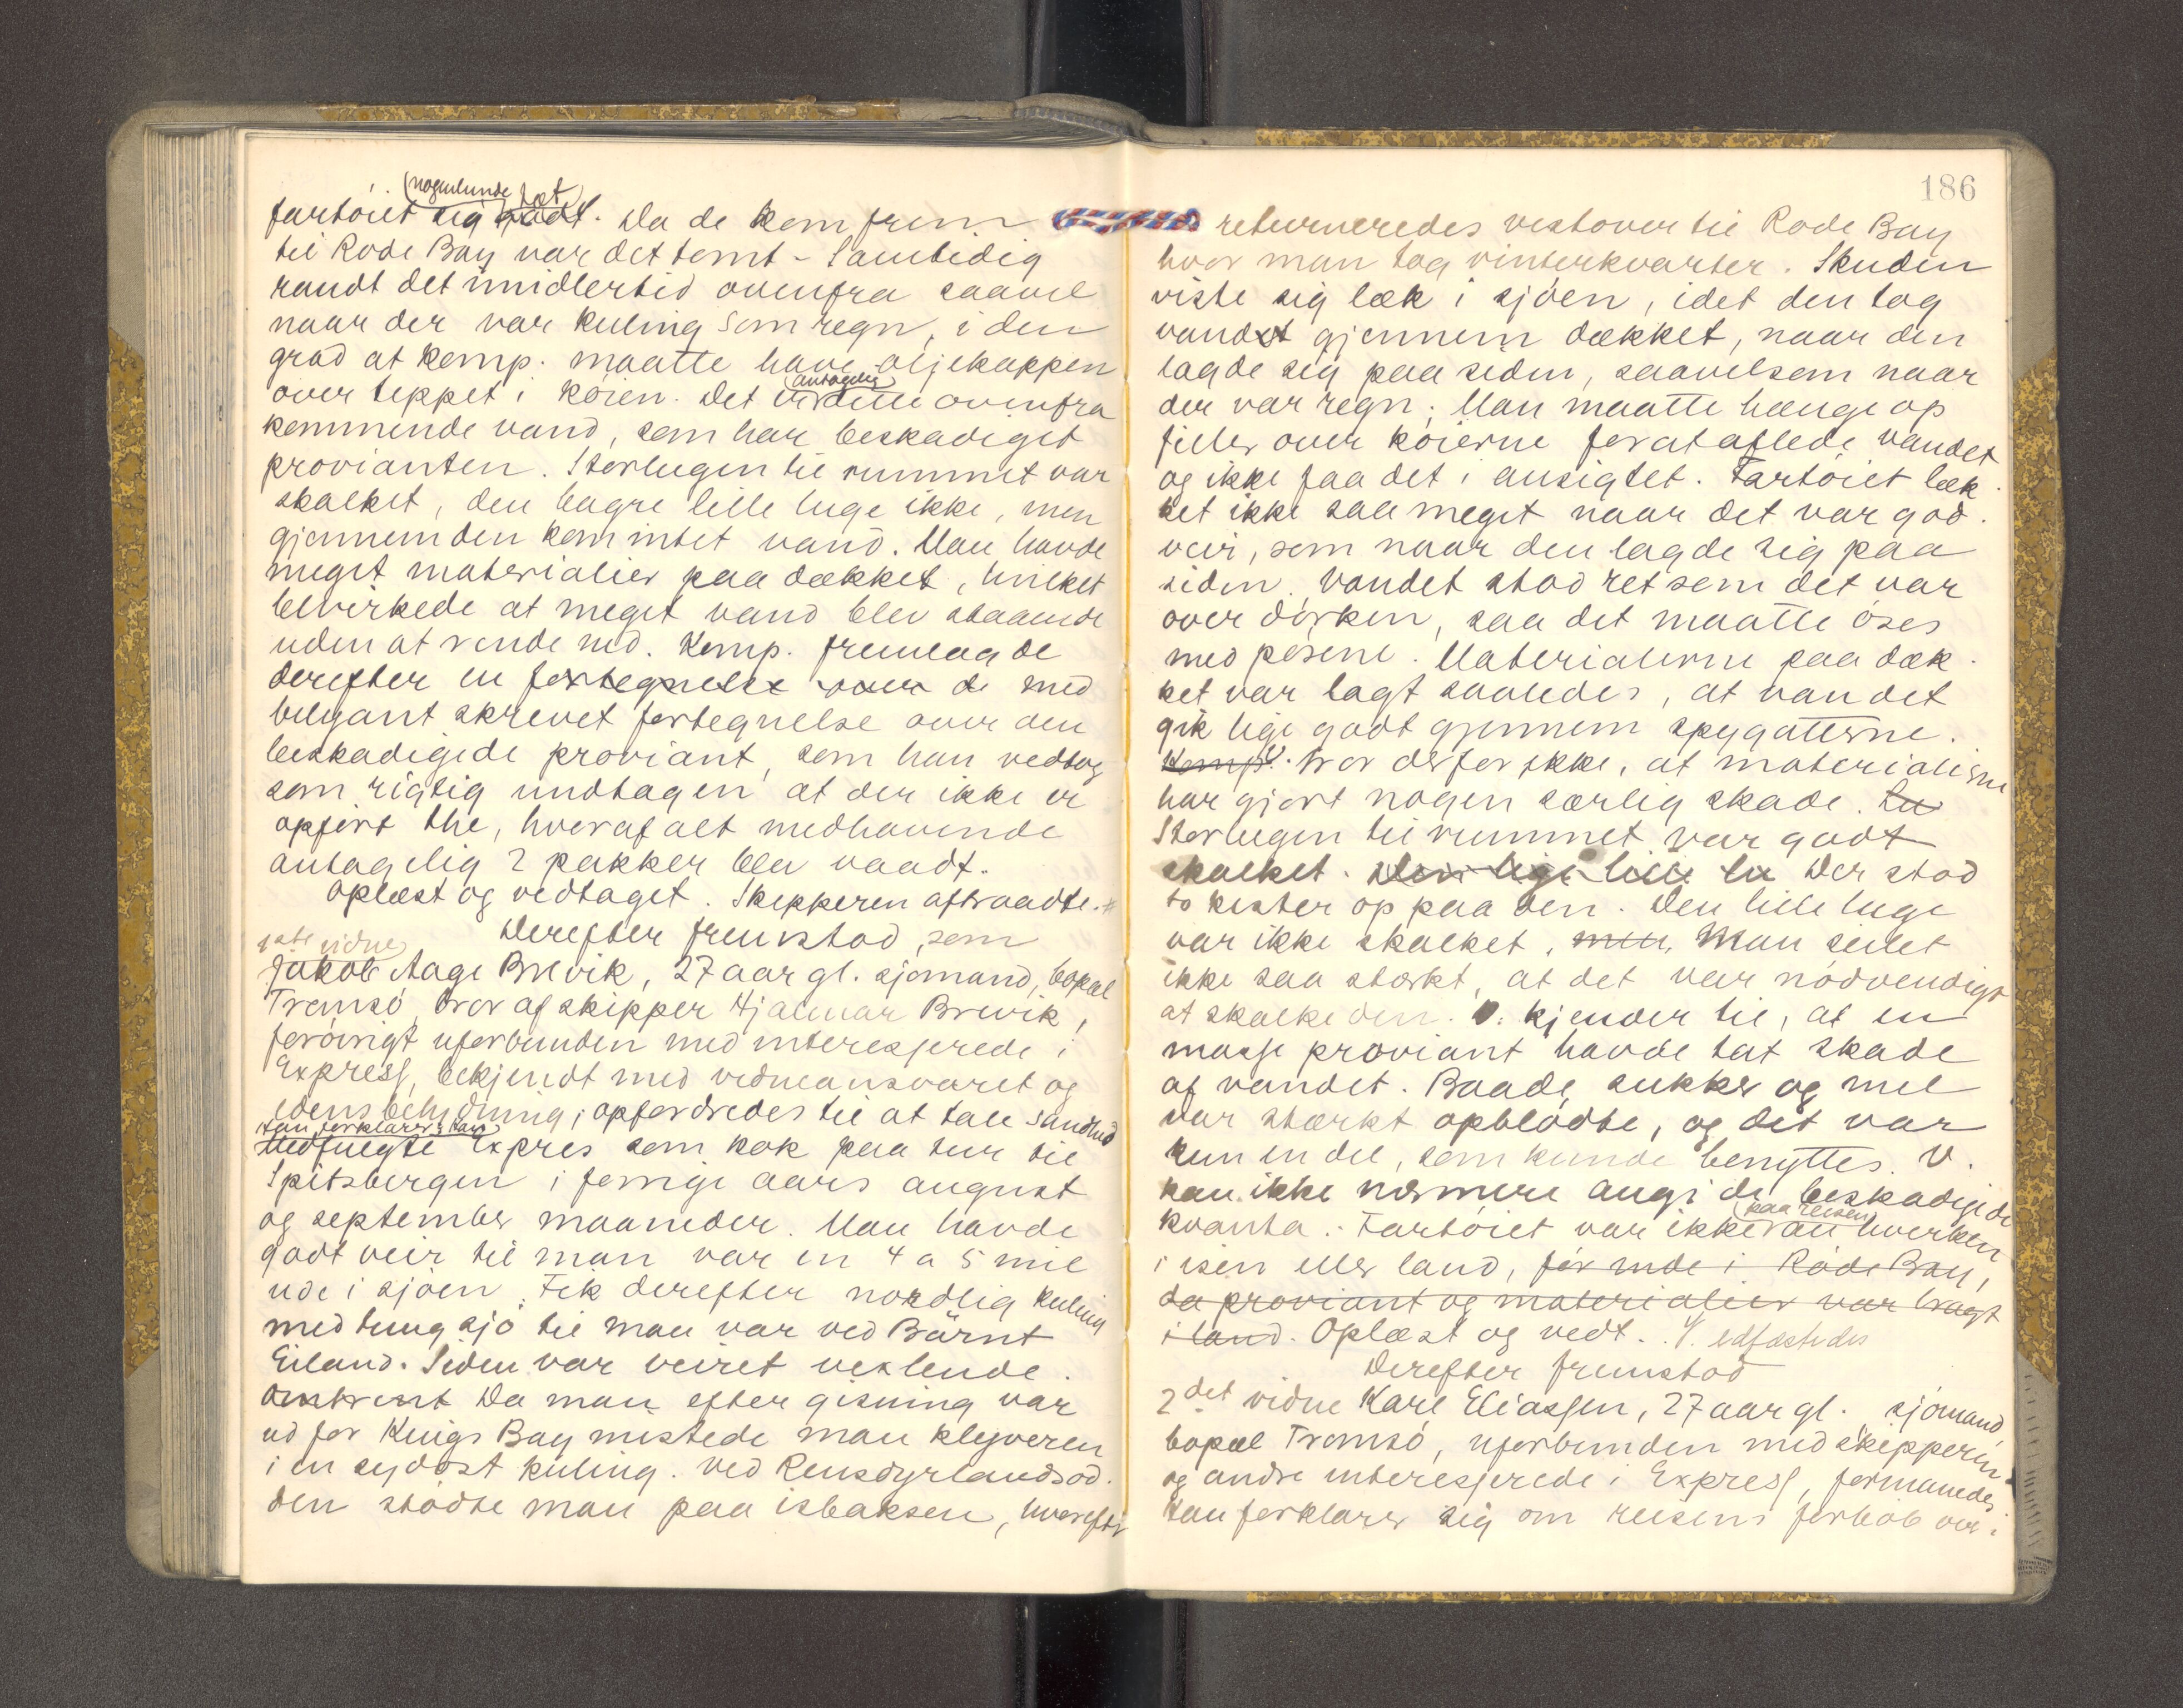 nogenlunde tæt
fartöiet sig godt. Da de kom frem
til Rode Bay var det tomt - Samtidig
randt det imidlertid ovenfra saavel
naar der var kuling som regn, i den
grad at komp. maatte have oljekappen
antagelig
over teppet i köien. Det er dette ovenfra
kommende vand, som har beskadiget
provianten. Storlugen til rummet var
skalket, den bagre lille luge ikke, men
gjennem den kom intet vand. Man havde
meget materialier paa dækket, hvilket
bevirkede at meget vand blev staaende
uden at rende ned. Komp. fremlagde
derefter en fortegnelse over de med
blyant skrevet fortegnelse over den
beskadigede proviant, som han vedtog
som rigtig undtagen at der ikke er
opfört the, hvoraf alt medhavende
antagelig 2 pakker blev vaadt.
Oplæst og vedtaget. Skipperen aftraadte. #
Derefter fremstod som
1ste vidne
Jakob Aage Brevik, 27 aar gl. sjömand, bopæl
Tromsö, bror af skipper Hjalmar Brevik,
forövrigt uforbunden med interesserede i
Express, bekjendt med vidneansvaret og
edens betydning, opfordredes til at tale sandhed
Han forklarer: Han
Medfulgte Expres som kok paa tur til
Spitsbergen i forrige aars august
og september maaneder. Man havde
godt veir til man var en 4 a 5 mil
ude i sjöen. Fik derefter nordlig kuling
med tung sjö til man var ved Bärnt
Eiland. Siden var veiret vexlende.
Omtrent Da man efter gisning var
ud for Kings Bay mistede man klyveren
i en sydost kuling. Ved Rensdyrlandsod-
den stödte man paa isbaksen, hvorefter
186
returneredes vestover til Rode Bay
hvor man tog vinterkvarter. Skuden
viste sig læk i sjöen, idet den tog
vandet gjennem dækket, naar den
lagde sig paa siden, saavelsom naar
der var regn; Man maatte hænge op
filler over köierne for at aflede vandet
og ikke faa det i ansigtet. Fartöiet læk-
ket ikke saa meget naar det var god-
veir, som naar den lagde sig paa
siden. Vandet stod ret som det var
over dörken, saa det maatte öses
med pösene. Materialerne paa dæk-
ket var lagt saaledes, at vandet
gik lige godt gjennem spygatterne.
Komp. V. tror derfor ikke, at materialierne
har gjort nogen særlig skade. Lu
Storlugen til rummet var godt
skalket. Den lige lille lu Der stod
to kister op paa den. Den lille luge
var ikke skalket, men, Man seilet
ikke saa stærkt, at det var nödvendigt
at skalke den. V. kjender til, at en
masse proviant havde tat skade
af vandet. Baade sukker og mel
var stærkt opblödte, og det var
kun en del, som kunde benyttes. V.
kan ikke nærmere angi de beskadigede
paa reisen
kvanta. Fartöiet var ikke an hverken
i isen eller land, för inde i Röde Bay,
da proviant og materialier var bragt
i land. Oplæst og vedt. V. edfæstedes
Derefter fremstod
2det vidne Karl Eliassen, 27 aar gl. sjömand,
bopæl Tromsö, uforbunden med skipperen
og andre interesserede i Express, formanedes
Han forklarer sig om reisens forlöb over i